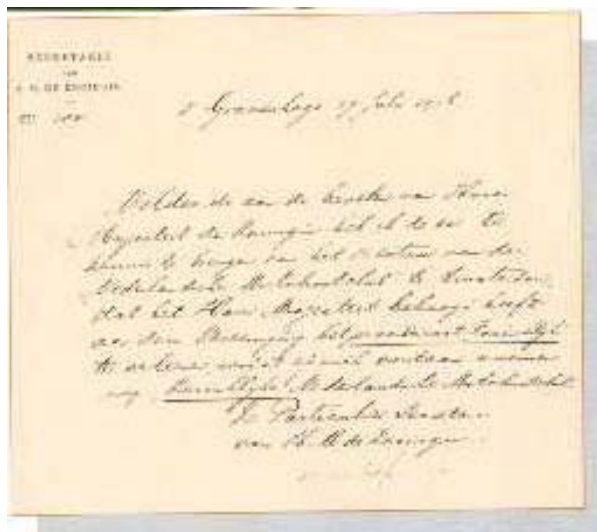 SECRETARIE
VAN
H. M. DE KONINGIN
's Gravenhage 27 Juli 1918
Voldoende aan de van Hare
Majesteit de Koningin heb ik de eer te
kennis te brengen van het Bestuur van de
Nederlandsche Motorbootclub te Amsterdam,
dat het Hare Majesteit behaagd heeft
aan deze Vereeniging het praedicaat Koninklijk
te verleenen zich voortaan noemen
mag Koninklijke Nederlandsche Motorbootclub
De Particulier Secretaris
van H. M. de Koningin